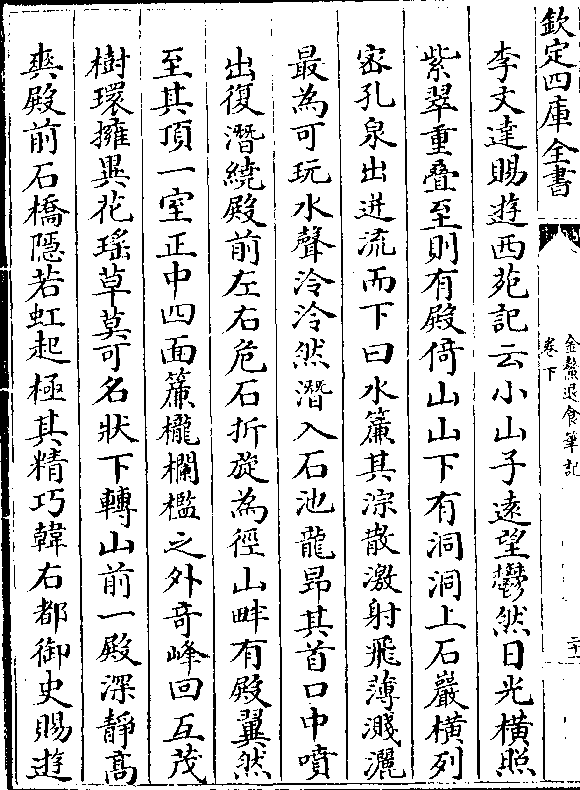 欽定四庫全書
金鰲退食筆記
卷下
二十一
李文達賜遊西苑記云小山子遠望鬱然日光橫照
紫翠重疊至則有殿倚山山下有洞洞上石巖橫列
密孔泉出迸流而下曰水簾其淙散激射飛薄濺灑
最為可玩水聲泠泠然潛入石池龍昂其首口中噴
出復潛繞殿前左右危石折旋為徑山畔有殿翼然
至其頂一室正中四面簾櫳欄檻之外奇峰回互茂
樹環擁異花瑤草莫可名狀下轉山前一殿深靜高
爽殿前石橋隱若虹起極其精巧韓右都御史賜遊